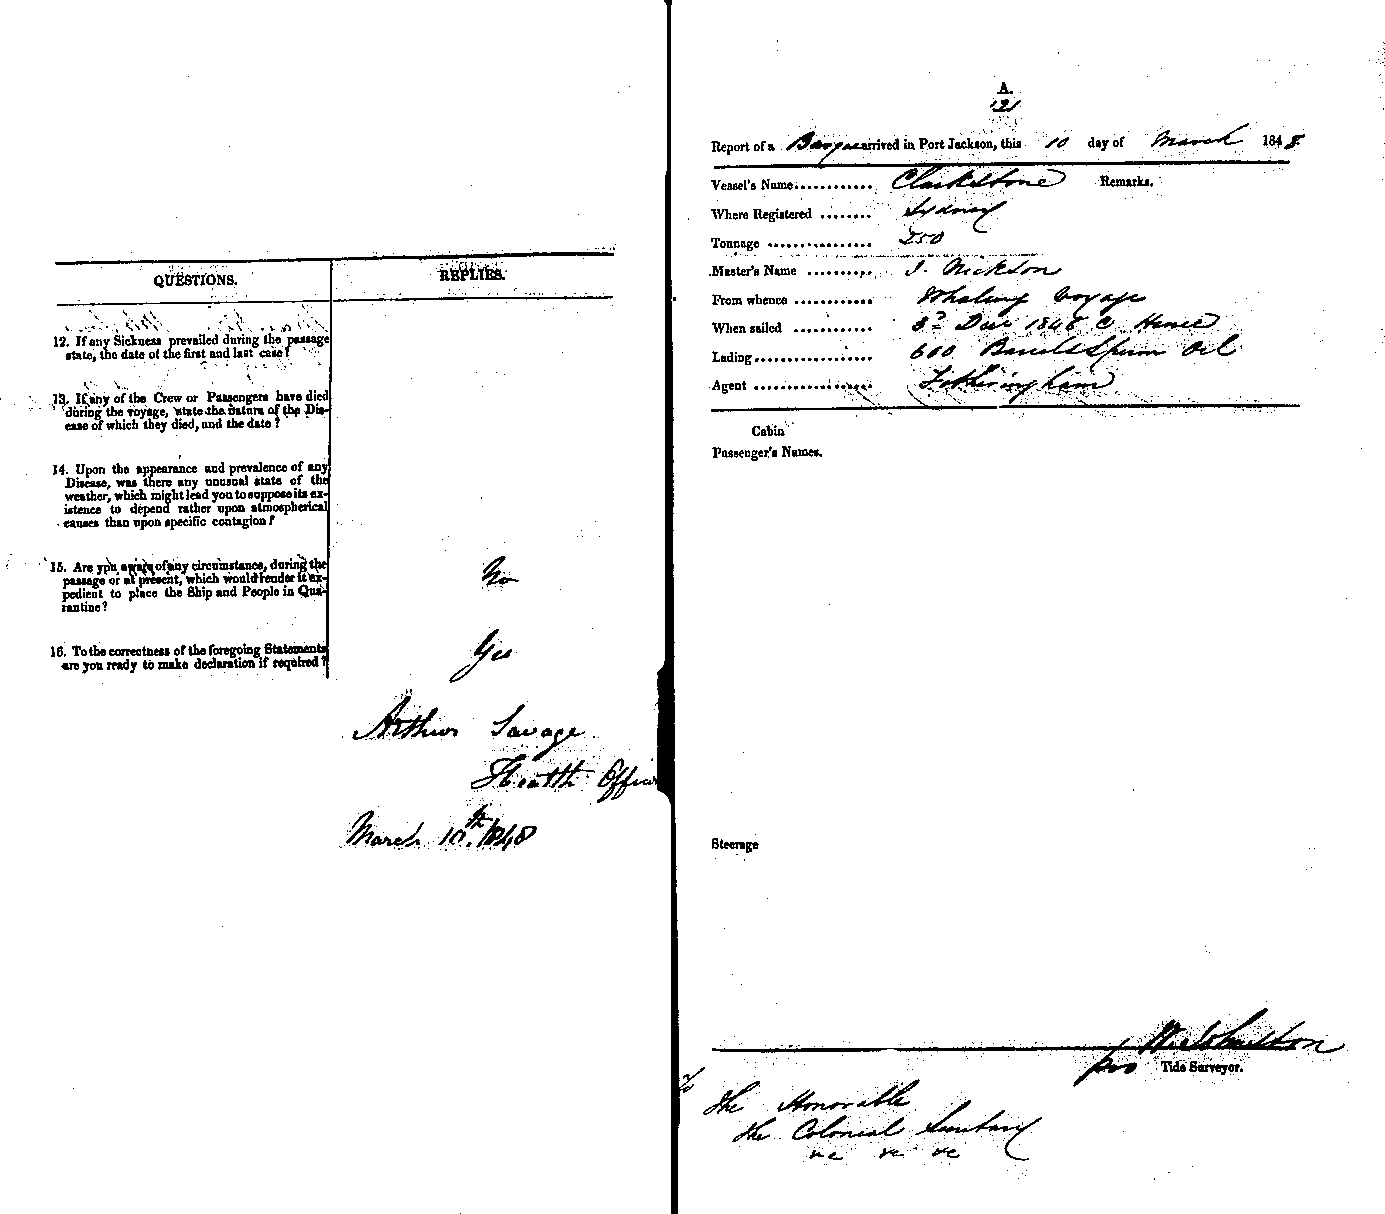 QUESTIONS.
REPLIES.
12. If any Sickness prevailed during the passage
state, the date of the first and last case?
13. If any of the Crew or Passengers have died
during the voyage, state the nature of the Dis-
ease of which they died, and the date?
14. Upon the appearance and prevalence of any
Disease, was there any unusual state of the
weather, which might lead you to suppose its ex-
istence to depend rather upon atmospherical
causes than upon specific contagion?
15. Are you aware of any circumstance, during the
passage or at present, which would render it ex-
pedient to place the Ship and People in Qua-
rantine?
No
16. To the correctness of the foregoing Statements
are you ready to make declaration if required?
Yes
Arthur Savage
Health Officer
March 10th. 1848
A.
121
Report of a Barque arrived in Port Jackson, this 10 day of March 1848
Vessel's Name............ Clarkstone Remarks.
Where Registered ........ Sydney
Tonnage ................ 250
Master's Name .......... J. Nickson
From whence ............ Whaling Voyage
When sailed ............ 3rd Decr 184 Hence
Lading.................. 600 Barrels Sperm Oil
Agent .................. Fotheringham
Cabin
Passenger's Names.
Steerage
W. Johnston
pro Tide Surveyor.
To
The Honorable
the Colonial Secretary
&c &c &c